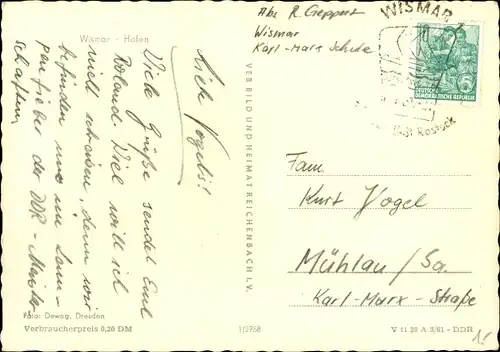 Wismar - Hafen
Liebe Vogels!
Viele Grüße sendet Euch
Roland. Viel will ich
nicht schreiben, denn wir
befinden uns im Lam-
penfieber der DDR - Meister-
schaften.
Foto: Dewag, Dresden
Verbraucherpreis 0,20 DM
VEB BILD UND HEIMAT REICHENBACH I. V.
1/2768
Abs. R. Geppert
Wismar
Karl-Marx Schule
WISMAR
DEUTSCHE
DEMOKRATISCHE REPUBLIK
Rostock
Fam.
Kurt Vogel
Mühlau / Sa.
Karl-Marx-Straße
V 11 28 A 3/61 - DDR